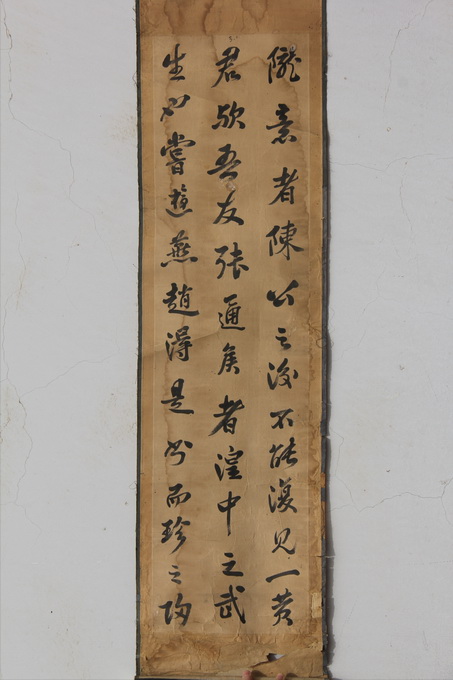 隴意者陳公之後不能復見一黄
君歟吾友張通侯者湟中之武
生也嘗遊燕趙得是書而珍之陶